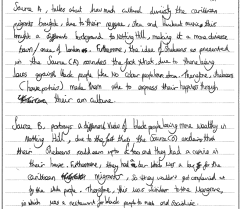 Source A, talks about how much culture diversity the caribbean
migrants brought, due to their reggae
brought a different background to Notting Hill, making it a more diverse
area of london. Furthermore, the idea of Shebeens is presented
in the Source (A) reinforces the fact that due to there being
laws against black people like No Colour people here, therefore, shebeens
(house parties) made them able to express their happiness through
their own culture.
Source B, portrays a different view of black people being more wealthy in
Notting Hill, due to the fact that the Source (B) outlines that
their Shebeens could earn up to and they had a casino in
their house. Furthermore, they had a bar which was a for the
caribbean migrants so they wouldn't get confronted as
by the white people. Therefore, this was similar to the Mangrove,
which was a restaurant for black people to meet and socialise.